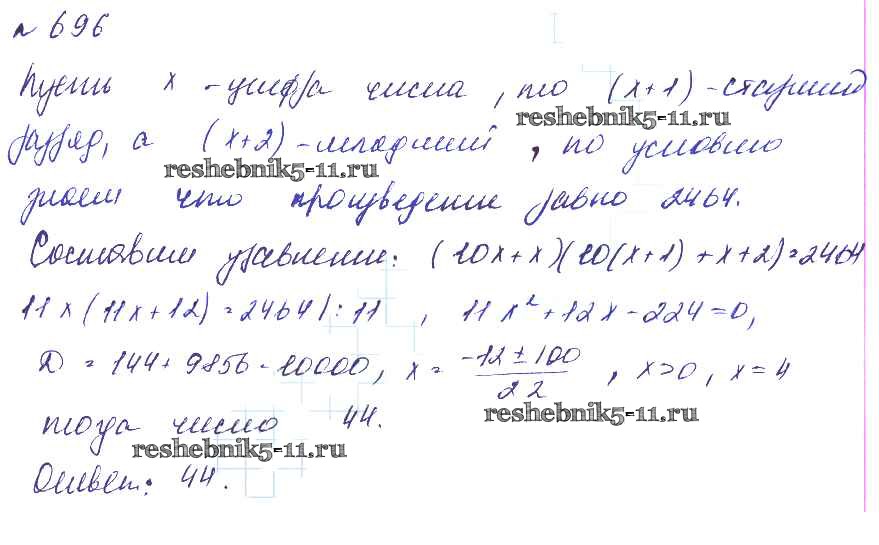 № 696
Пусть x - цифра числа, то (x+1) - старший
reshebnik5-11.ru
разряд, а (x+2) - младший, по условию
reshebnik5-11.ru
знаем что произведение равно 2464.
Составим уравнение: (10x+x)(10(x+1)+x+2)=2464
11x(11x+12)=2464 |:11, 11x²+12x-224=0,
D = 144+9856=10000, x = (-12±100)/22, x>0, x=4
reshebnik5-11.ru
тогда число 44.
reshebnik5-11.ru
Ответ: 44.